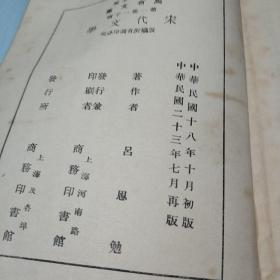 中華民國十八年十月初版
中華民國二十三年七月再版
宋代文學
著作者 呂思勉
發行兼印刷者 上海河南路 商務印書館
發行所 上海及各埠 商務印書館